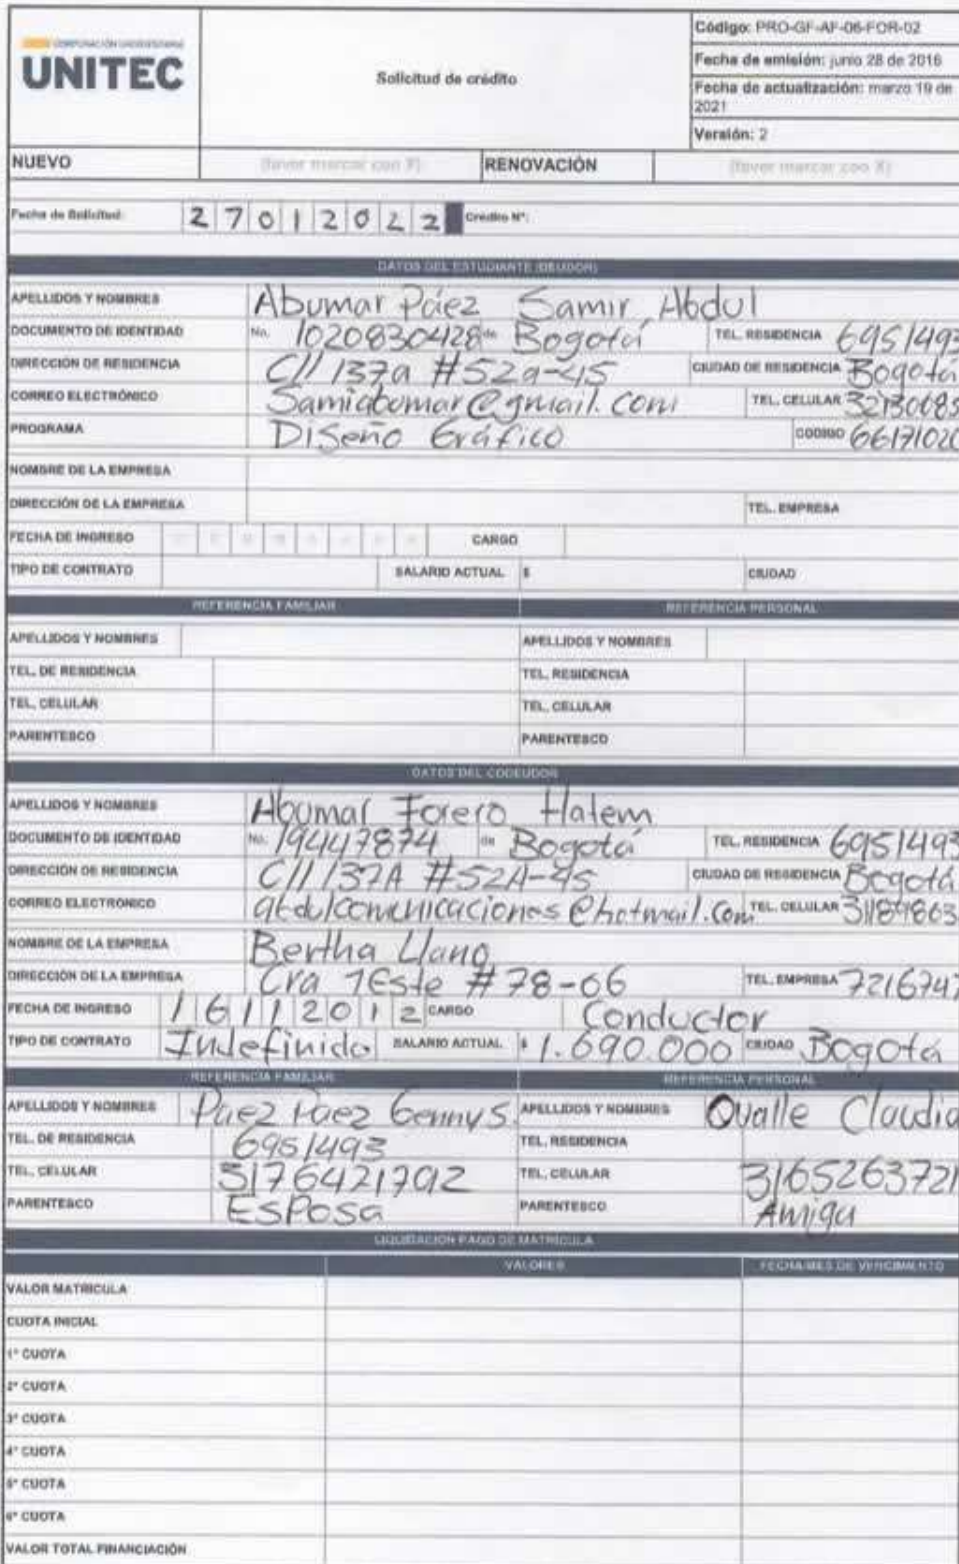 CORPORACIÓN UNIVERSITARIA
UNITEC
Solicitud de crédito
Código: PRO-GF-AF-06-FOR-02
Fecha de emisión: junio 28 de 2016
Fecha de actualización: marzo 19 de 2021
Versión: 2
NUEVO (favor marcar con X) RENOVACIÓN (favor marcar con X)
Fecha de Solicitud: 2 7 0 1 2 0 2 2 Crédito N°:
DATOS DEL ESTUDIANTE (DEUDOR)
APELLIDOS Y NOMBRES Abumar Páez Samir Abdul
DOCUMENTO DE IDENTIDAD No. 1020830428 de Bogotá TEL. RESIDENCIA 6951493
DIRECCIÓN DE RESIDENCIA Cll 137a #52a-45 CIUDAD DE RESIDENCIA Bogotá
CORREO ELECTRÓNICO Samiabumar@gmail.com TEL. CELULAR
PROGRAMA Diseño Gráfico CODIGO 66171020
NOMBRE DE LA EMPRESA
DIRECCIÓN DE LA EMPRESA TEL. EMPRESA
FECHA DE INGRESO CARGO
TIPO DE CONTRATO SALARIO ACTUAL $ CIUDAD
REFERENCIA FAMILIAR REFERENCIA PERSONAL
APELLIDOS Y NOMBRES APELLIDOS Y NOMBRES
TEL. DE RESIDENCIA TEL. RESIDENCIA
TEL. CELULAR TEL. CELULAR
PARENTESCO PARENTESCO
DATOS DEL CODEUDOR
APELLIDOS Y NOMBRES Abumar Forero Hatem
DOCUMENTO DE IDENTIDAD No. 19447874 de Bogotá TEL. RESIDENCIA 6951493
DIRECCIÓN DE RESIDENCIA Cll 137A #52A-45 CIUDAD DE RESIDENCIA Bogotá
CORREO ELECTRONICO abdulcomunicaciones@hotmail.com TEL. CELULAR
NOMBRE DE LA EMPRESA Bertha Llano
DIRECCIÓN DE LA EMPRESA Cra 1Este #78-06 TEL. EMPRESA 7216747
FECHA DE INGRESO 1 6 1 1 2 0 1 2 CARGO Conductor
TIPO DE CONTRATO Indefinido SALARIO ACTUAL $ 1.690.000 CIUDAD Bogotá
REFERENCIA FAMILIAR REFERENCIA PERSONAL
APELLIDOS Y NOMBRES Paez Paez Genny S. APELLIDOS Y NOMBRES Ovalle Claudia
TEL. DE RESIDENCIA 6951493 TEL. RESIDENCIA
TEL. CELULAR 3176421792 TEL. CELULAR 3165263721
PARENTESCO Esposa PARENTESCO Amiga
LIQUIDACIÓN PAGO DE MATRICULA
VALORES FECHA/MES DE VENCIMIENTO
VALOR MATRICULA
CUOTA INICIAL
1° CUOTA
2° CUOTA
3° CUOTA
4° CUOTA
5° CUOTA
6° CUOTA
VALOR TOTAL FINANCIACIÓN